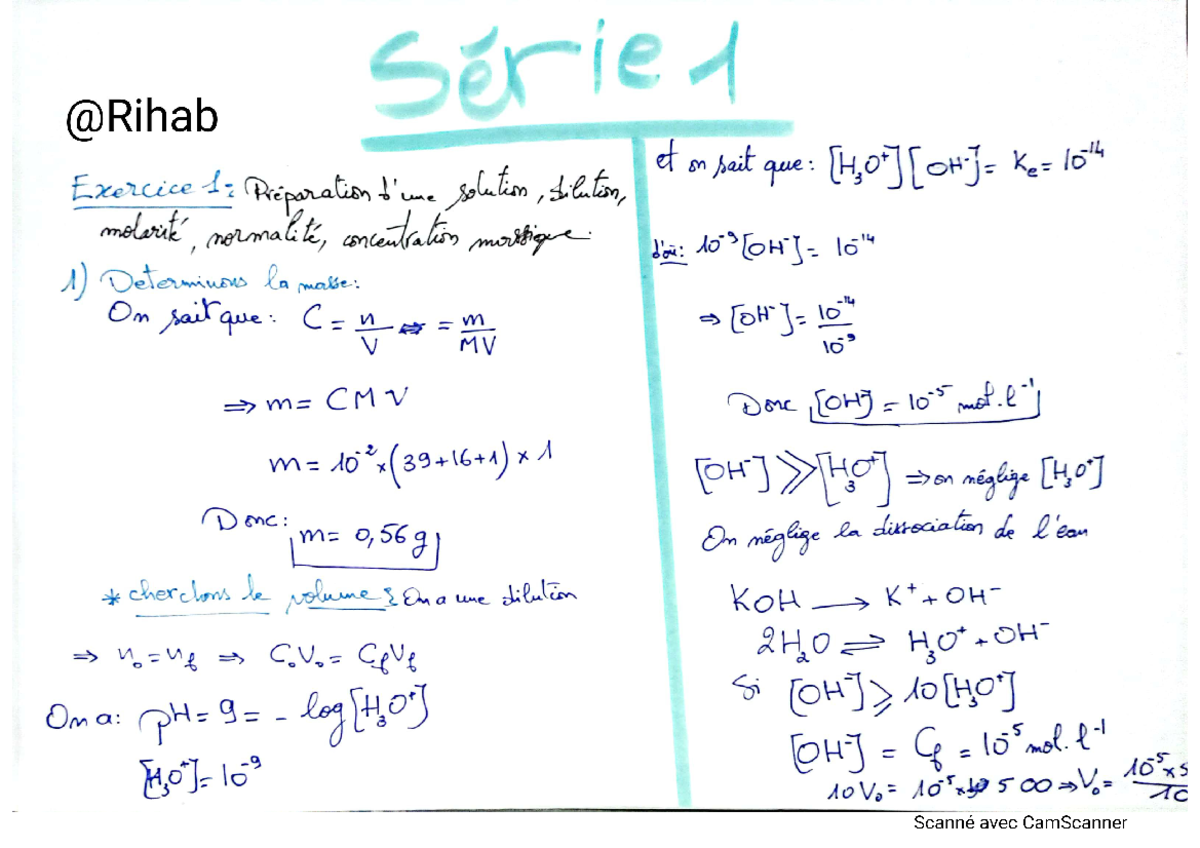 Série 1
@Rihab
Exercice 1: Préparation d'une solution, dilution,
molarité, normalité, concentration massique.
1) Determinons la masse:
On sait que: C = n/V ⇔ = m/MV
⇒ m = CMV
m = 10^-2 x (39+16+1) x 1
Donc: m = 0,56g
* cherchons le volume: On a une dilution
⇒ n₀ = n_f ⇒ C₀V₀ = C_fV_f
On a: pH = 9 = - log[H₃O⁺]
[H₃O⁺] = 10^-9
et on sait que: [H₃O⁺][OH⁻] = Ke = 10^-14
d'où: 10^-9 [OH⁻] = 10^-14
⇒ [OH⁻] = 10^-14/10^-9
Donc [OH⁻] = 10^-5 mol.l^-1
[OH⁻] >> [H₃O⁺] ⇒ on néglige [H₃O⁺]
On néglige la dissociation de l'eau
KOH → K⁺ + OH⁻
2H₂O ⇌ H₃O⁺ + OH⁻
Si [OH⁻] ⩾ 10[H₃O⁺]
[OH⁻] = C_f = 10^-5 mol.l^-1
10V₀ = 10^-5 x 500 ⇒ V₀ = 10^-5 x 5/10
Scanné avec CamScanner